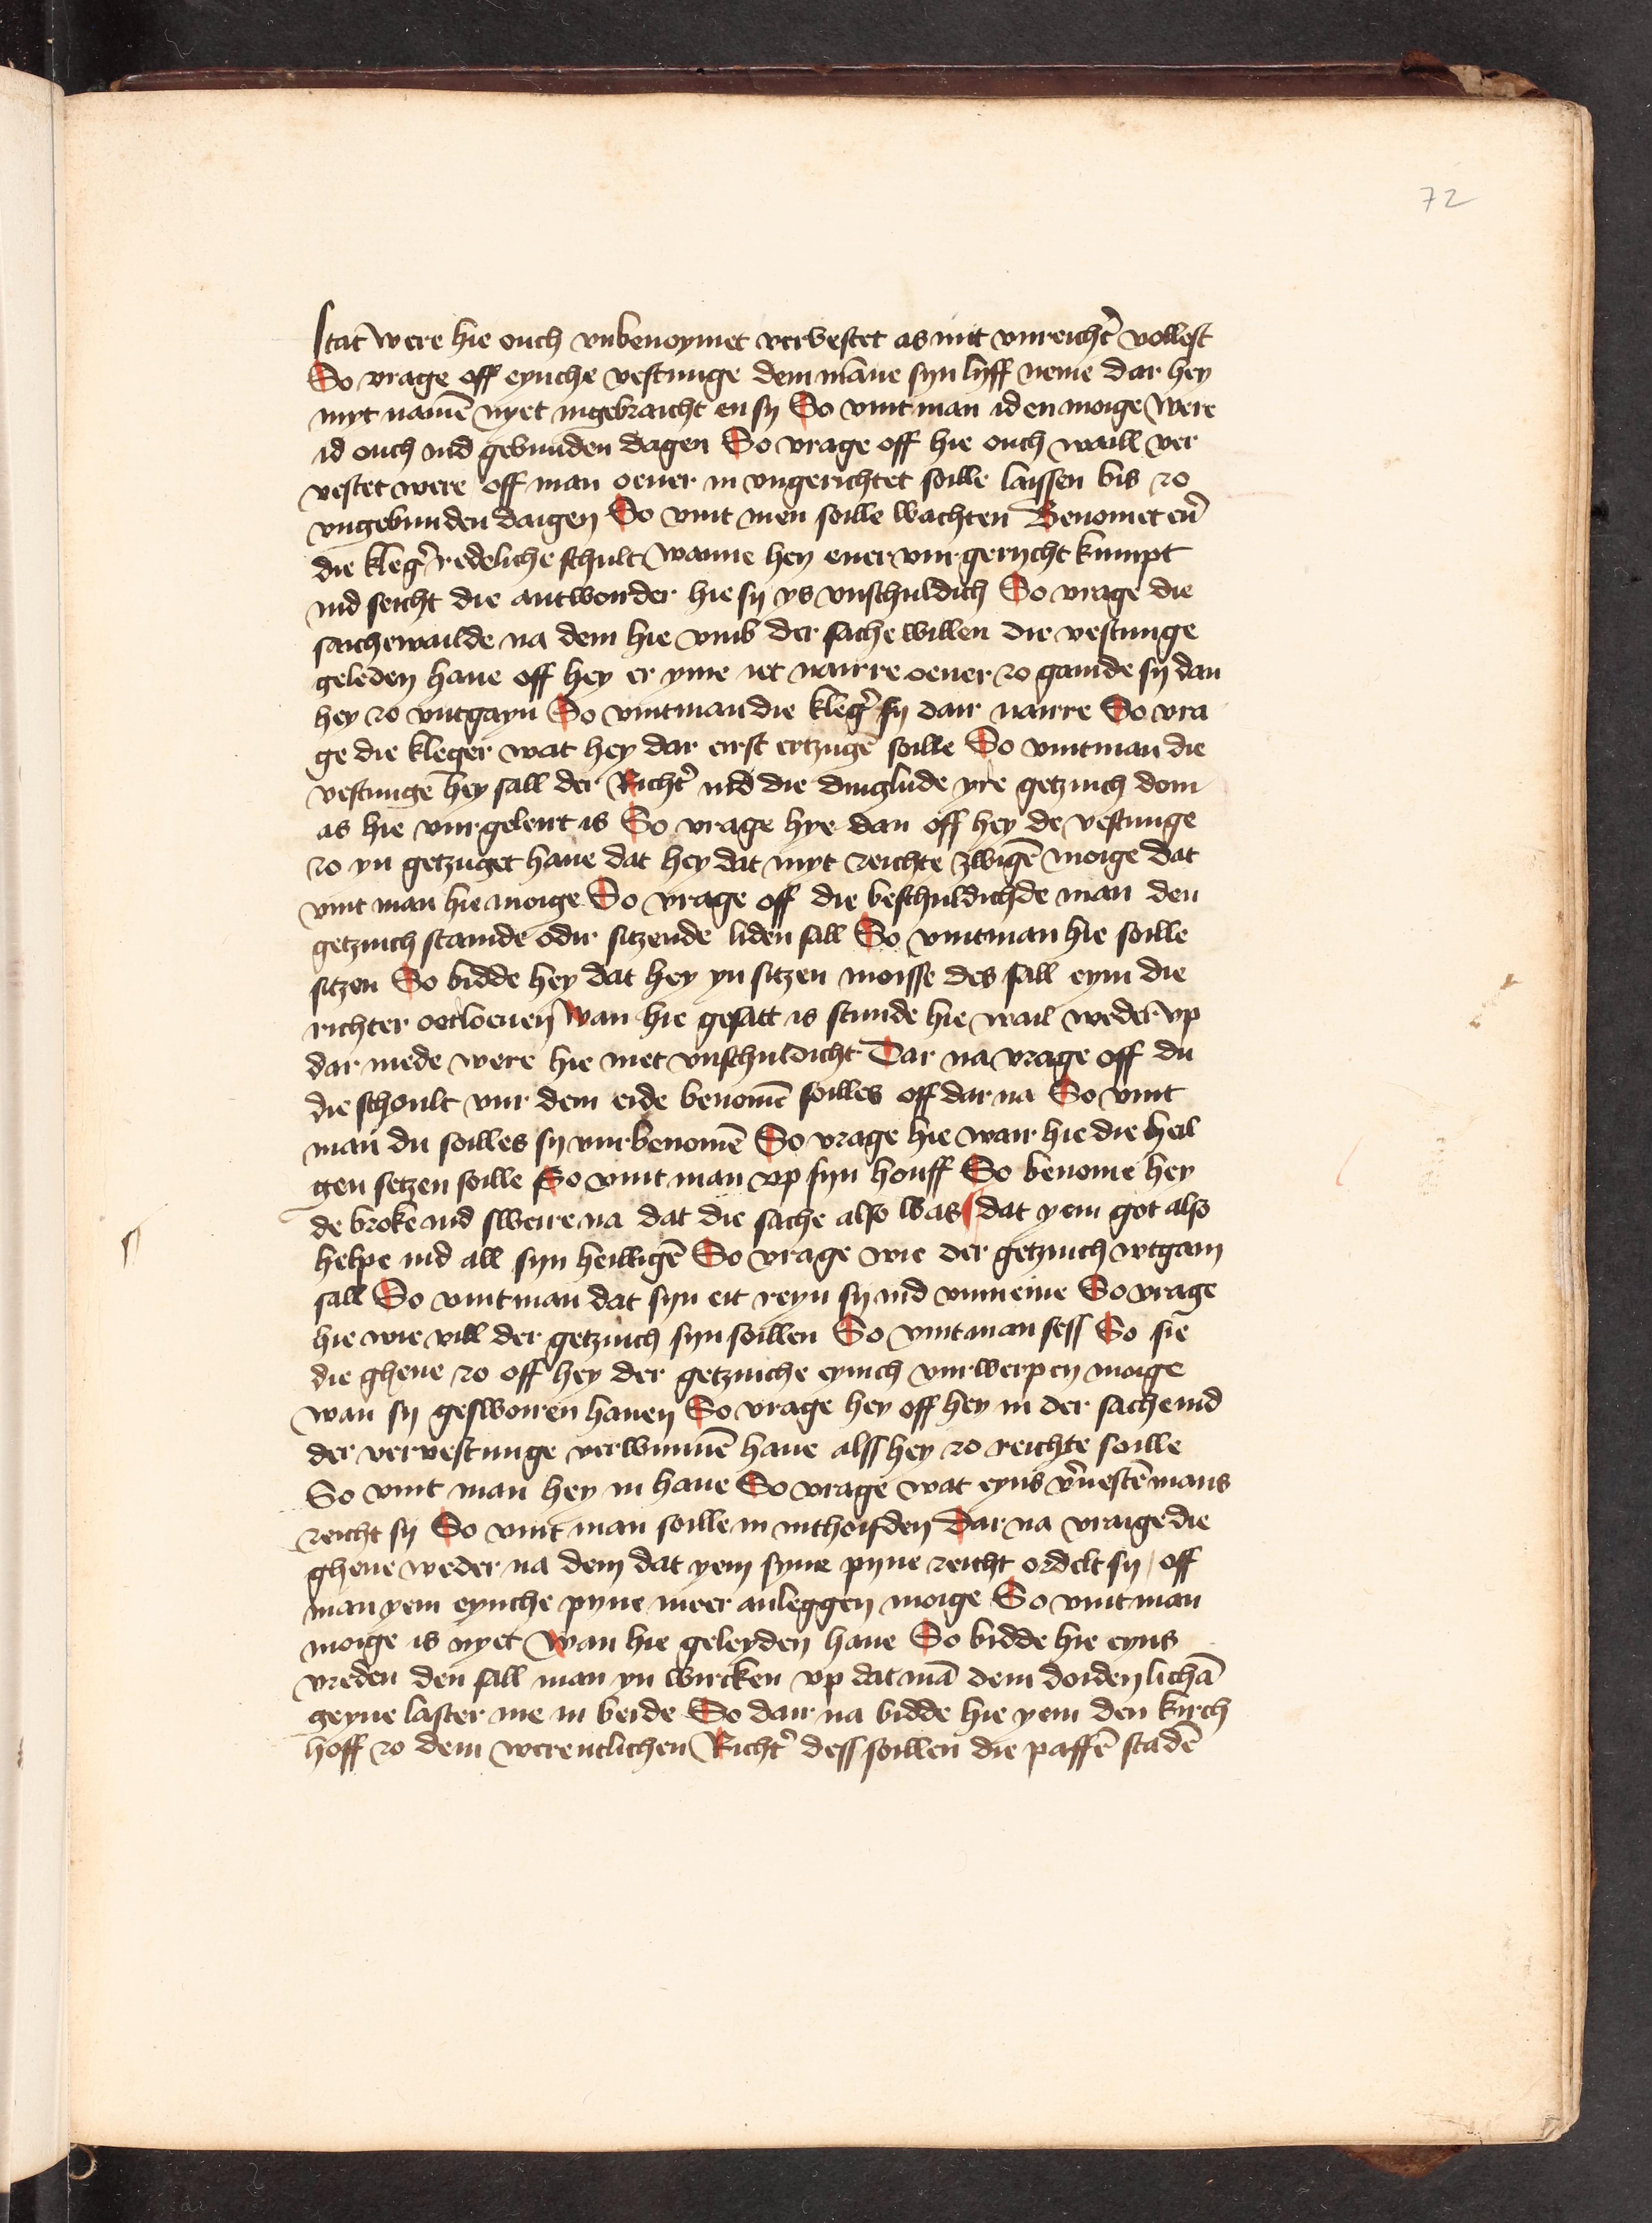 72
stat were hie ouch vnbenoymet vervestet as mit vnreicht᷑ vollest
So vrage off eynche vestunge dem mãne syn lyff neme dar hey
myt namē nyet ingebraicht en sy So vint man id en moige were
id ouch ind gebunden dagen So vrage off hie ouch waill ver
vestet were off man oeuer in vngerichtet soille laissen bis zo
vngebunden daigen So vint men soille wachten Benomet en᷑
die kleg᷑ redeliche schult wanne hey euer vur gerycht kumpt
ind seicht die antwonder hie sy ys vnschuldich So vrage die
saichewailde na dem hie vmb der sache willen die vestunge
geleden haue off hey er yme iet nairre oeuer zo gainde sy dan
hey zo vntgayn So vintman die kleg᷑ sy dair nairre So vra
ge die kleger wat hey dar eirst ertzugē soille So vintman die
vestunge hey sall der Richt᷑ ind die dinglude yre getzuich dom
as hie vurgelent is So vrage hye dan off hey de vestunge
zo yn getzuget haue dat hey dat myt reichte zwigē moige dat
vint man hie moige So vrage off die beschuldichde man den
getzuich stainde odir sitzende liden sall So vintman hie soille
sitzen So bidde hey dat hey yn sitzen moisse des sall eym die
richter oerloeuen Wan hie gesatt is stunde hie wail weder vp
dar mede were hie niet vnschuldicht Dar na vrage off du
die schoult vur dem eide benomē soilles off dar na So vint
man du soilles sy vurbenomē So vrage hie wair hie die heil
gen setzen soille So vint man vp syn houff So benome hey
de broke ind sweire na dat die sache also was dat yem got also
helpe ind all syn heilligē So vrage wie der getzuich vtgain
sall So vintman dat syn eit reyn sy ind vnmeine So vrage
hie wie vill der getzuich syn soillen So vintman sess So sie
die ghene zo off hey der getzuiche eynich vurwerpen moige
wan sy geswoiren hauen So vrage hey off hey in der sache ind
der vervestunge verwunnē haue alss hey zo reichte soille
So vint man hey in haue So vrage wat eyns v᷑uestē mans
reicht sy So vint man soille in inthoifden Dar na vraige die
ghene weder na dem dat yem syne pyne reicht ordelt sy / off
man yem eynche pyne meer anleggen moige So vintman
moige is nyet Wan hie geleyden haue So bidde hie eyns
vreden den sall man yn wircken vp dat mã dem doiden lichã
geyne laster me in beide So dair na bidde hie yem den kirch
hoff zo dem werentlichen Richt᷑ dess soillen die paffē stadē